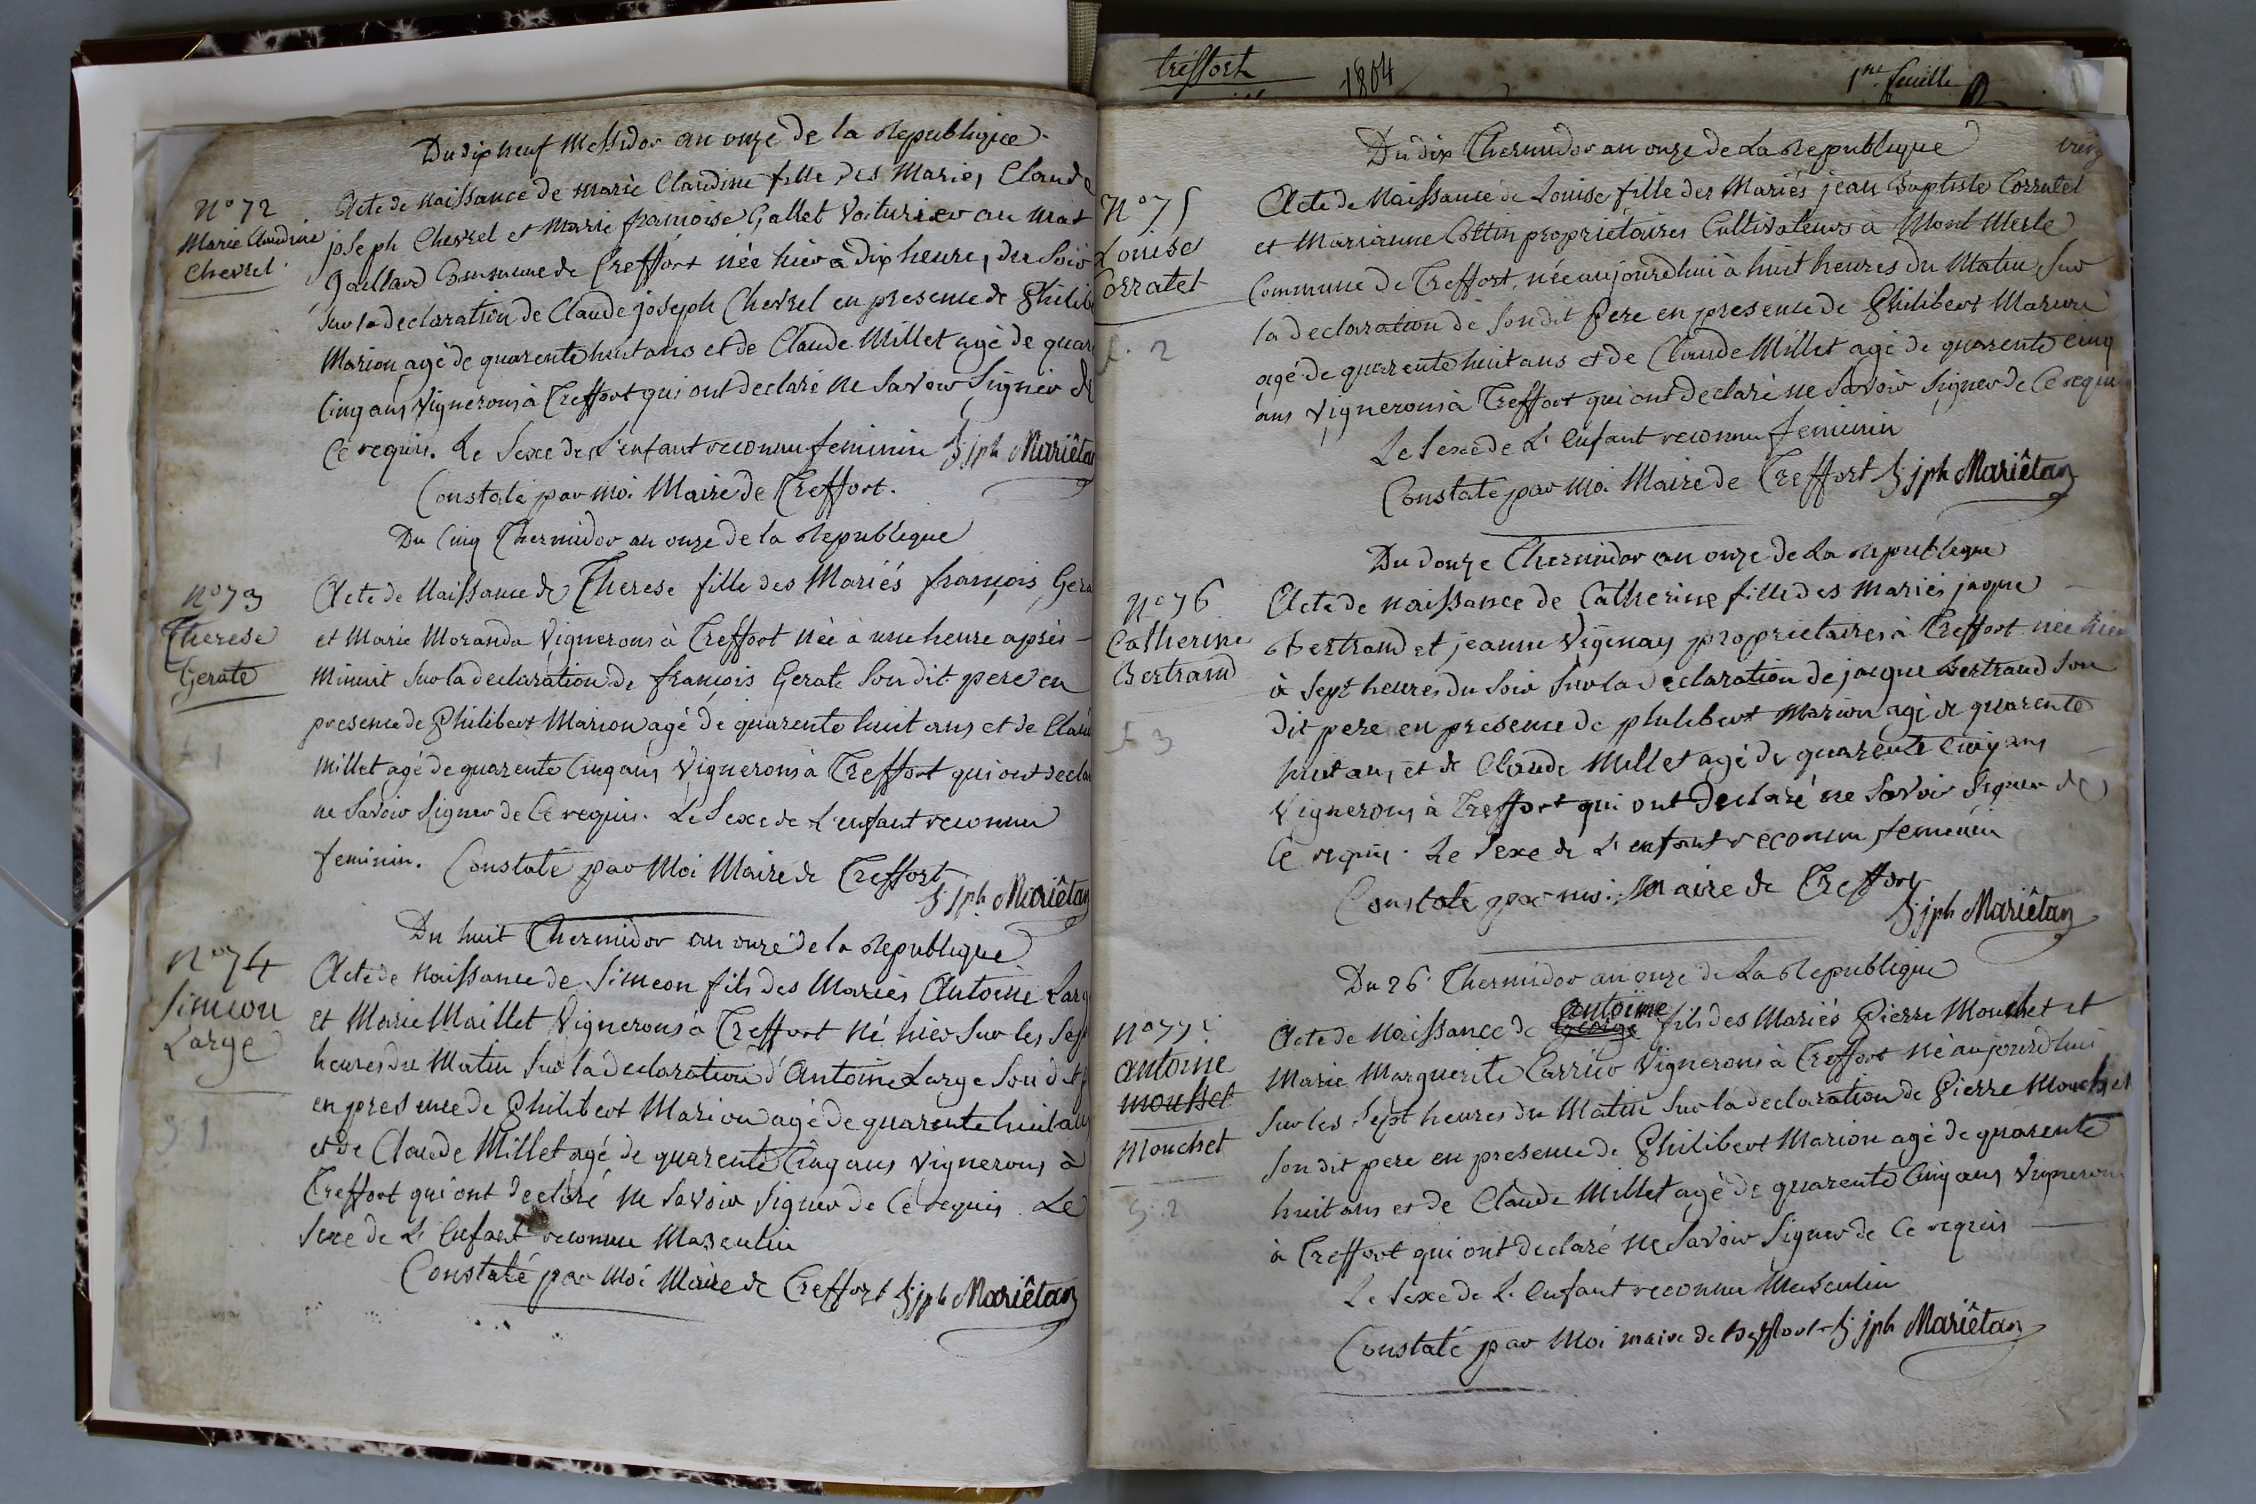 Du dix neuf Messidor an onze de la Republique
N° 72
Marie Claudine
Chevrel
Acte de Naissance de Marie Claudine fille des Mariés Claude
joseph Chevrel et Marie françoise Gallet Voiturier au
Gaillard Commune de Treffort née hier à dix heures du Soir
Sur la declaration de Claude joseph Chevrel en presence de Philib
Marion agé de quarente huit ans et de Claude Millet agé de quar
Cinq ans Vignerons à Treffort qui ont declaré ne Savoir Signer de
Ce requis. Le Sexe de L'enfant reconnu feminin jph Mariêtan
Constaté par Moi Maire de Treffort.
Du Cinq Thermidor an onze de la Republique
N° 73
Therese
Gerate
Acte de Naissance de Therese fille des Mariés françois Gera
et Marie Moranda Vignerons à Treffort Née à une heure après
Minuit Sur la declaration de françois Gerate Son dit pere en
presence de Philibert Marion agé de quarente huit ans et de Claud
Millet agé de quarente Cinq ans Vignerons à Treffort qui ont declar
ne Savoir Signer de Ce requis. Le Sexe de L'enfant reconnu
feminin. Constaté par Moi Maire de Treffort
jph Mariêtan
Du huit Thermidor an onze de la Republique
N° 74
Simeon
Large
Acte de Naissance de Simeon fils des Mariés Antoine Larg
et Marie Maillet Vignerons à Treffort Né hier Sur les Sept
heures du Matin Sur la declaration d'Antoine Large Son dit p
en presence de Philibert Marion agé de quarente huit ans
et de Claude Millet agé de quarente Cinq ans Vignerons à
Treffort qui ont declaré ne Savoir Signer de Ce requis. Le
Sexe de L'enfant reconnu Masculin
Constaté par Moi Maire de Treffort jph Mariêtan
treffort 1804 1re feuille
Du dix Thermidor an onze de La Republique
N° 75
Louise
Corratet
2
Acte de Naissance de Louise fille des Mariés jean Baptiste Corratet
et Marianne Cottin propriétaires Cultivateurs à Mont Merle
Commune de Treffort, née aujourdhui à huit heures du Matin Sur
la declaration de Son dit Pere en presence de Philibert Marion
agé de quarente huit ans et de Claude Millet agé de quarente cinq
ans Vignerons à Treffort qui ont declaré ne Savoir Signer de Ce requis
Le Sexe de L'enfant reconnu feminin
Constaté par Moi Maire de Treffort jph Mariêtan
Du douze Thermidor an onze de La Republique
N° 76
Catherine
Bertrand
3
Acte de Naissance de Catherine fille des Mariés jaque
Bertrand et jeanne Vigenay proprietaires à Treffort née hier
à Sept heures du Soir Sur la declaration de jacque Bertrand Son
dit pere en presence de philibert Marion agé de quarente
huit ans et de Claude Millet agé de quarente Cinq ans
Vignerons à Treffort qui ont declaré ne Savoir Signer de
Ce requis. Le Sexe de L'enfant reconnu feminin
Constaté par moi Maire de Treffort
jph Mariêtan
Du 26 Thermidor an onze de La Republique
N° 77
antoine
mousset
Mouchet
2
antoine
Acte de Naissance de George fils des Mariés Pierre Mouchet et
Marie Marguerite Carrier Vignerons à Treffort Né aujourdhui
Sur les Sept heures du Matin Sur la declaration de Pierre Mouchet
Son dit pere en presence de Philibert Marion agé de quarente
huit ans et de Claude Millet agé de quarente Cinq ans Vignerons
à Treffort qui ont declaré ne Savoir Signer de Ce requis
Le Sexe de L'enfant reconnu Masculin
Constaté par Moi maire de treffort jph Mariêtan